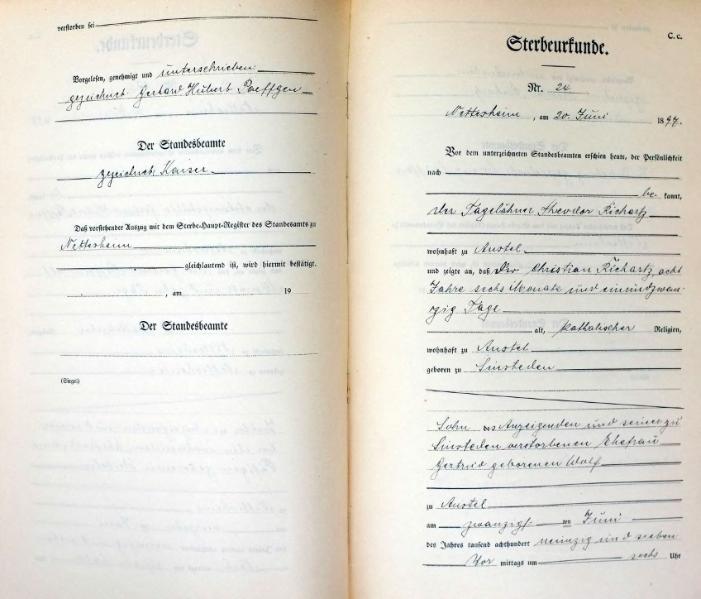 verstorben sei
Vorgelesen, genehmigt und unterschrieben
gezeichnet: Gerhard Hubert Poeffgen
Der Standesbeamte
gezeichnet: Kaiser
Daß vorstehender Auszug mit dem Sterbe-Haupt-Register des Standesamts zu
Nettersheim
gleichlautend ist, wird hiermit bestätigt.
, am 19
Der Standesbeamte
(Siegel)
C. c.
Sterbeurkunde.
Nr. 24
Nettersheim, am 20. Juni 1897.
Vor dem unterzeichneten Standesbeamten erschien heute, der Persönlichkeit
nach
be kannt,
der Tagelöhner Theodor Richartz
wohnhaft zu Anstel
und zeigte an, daß Christian Richartz, acht
Jahre sechs Monate und einundzwan-
zig Tage
alt, katholischer Religion,
wohnhaft zu Anstel
geboren zu Sinsteden
Sohn des Anzeigenden und seiner zu
Sinsteden verstorbenen Ehefrau
Gertrud geborenen Wolf
zu Anstel
am zwanzigst en Juni
des Jahres tausend achthundert neunzig und sieben
Vor mittags um sechs Uhr